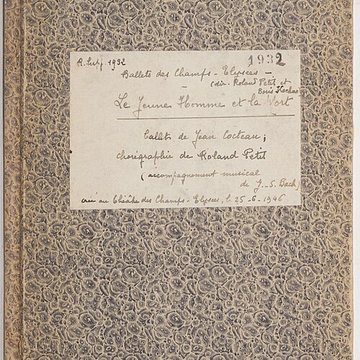 R. Supp. 1932
1932
Ballets des Champs-Elysées -
(dir. Roland Petit et
Boris Kochno
Le Jeune Homme et la Mort
ballet de Jean Cocteau;
chorégraphie de Roland Petit
(accompagnement musical
de J.-S. Bach)
créé au Théâtre des Champs-Elysées, le 25-6-1946